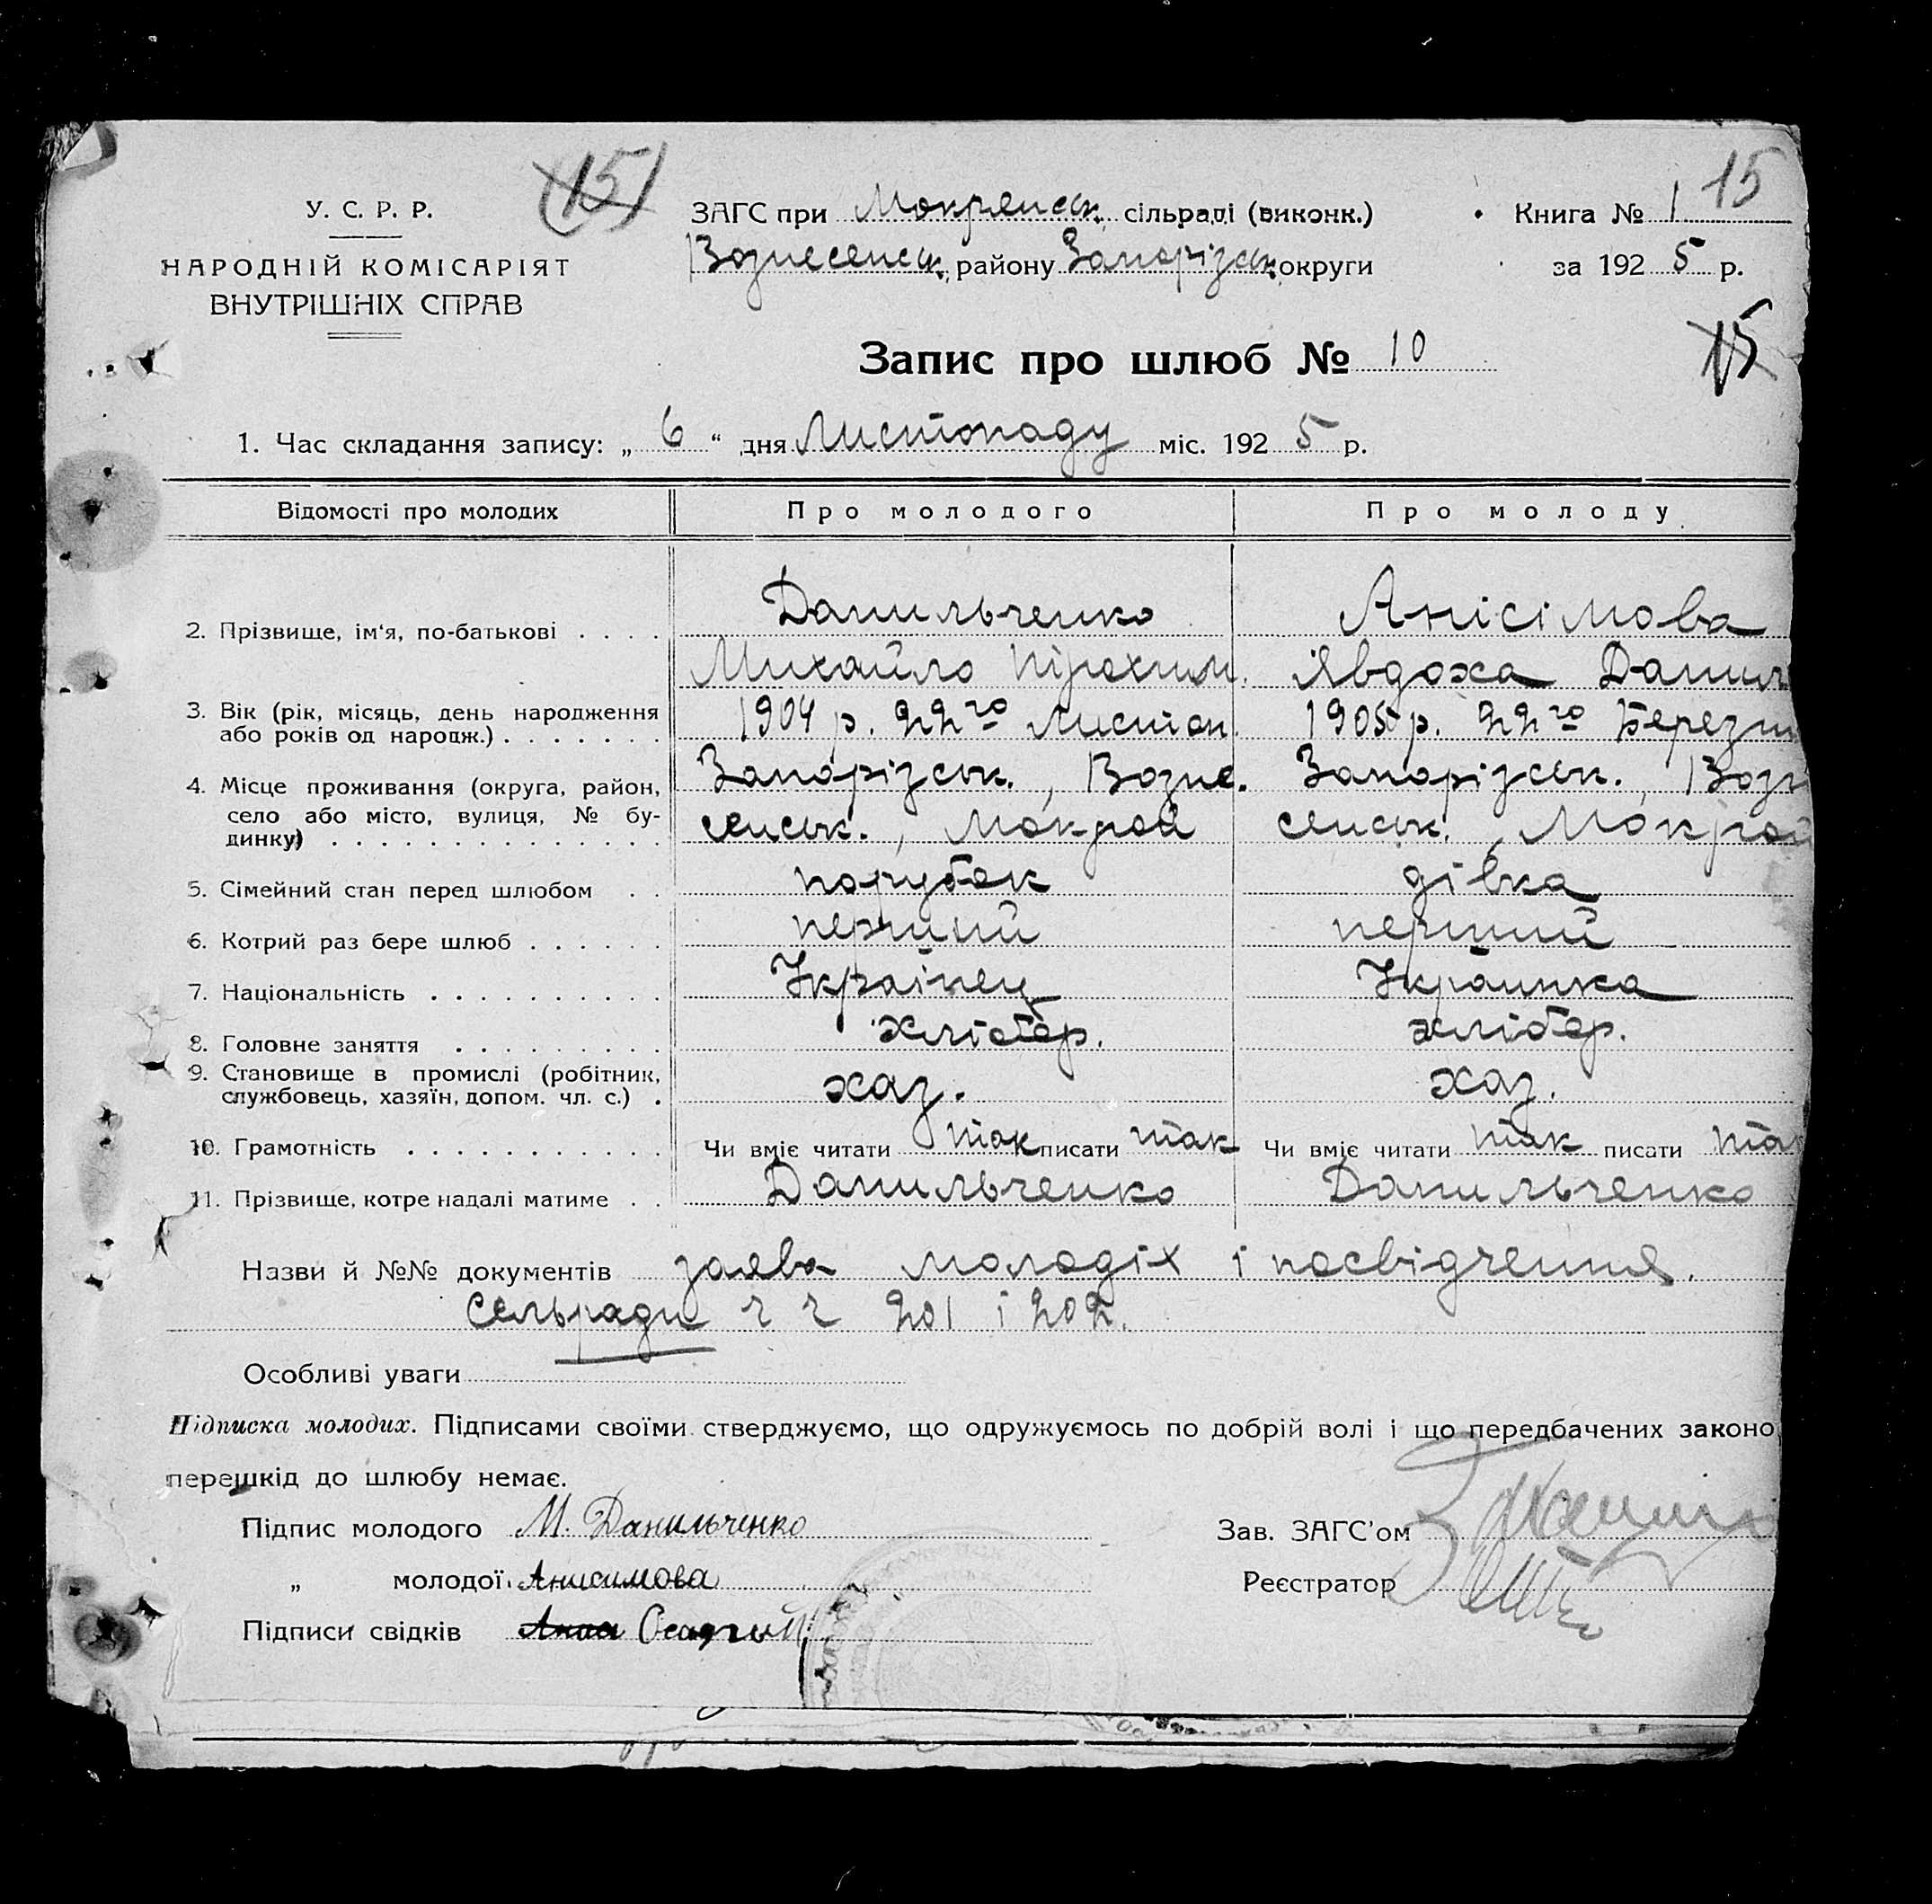 (15)
15
У. С. Р. Р.
НАРОДНІЙ КОМІСАРІЯТ
ВНУТРІШНІХ СПРАВ
ЗАГС при Мокрянськ. сільраді (виконк.)
Вознесенськ. району Запорізьк. округи
Книга № 1
за 1925 р.
15
Запис про шлюб № 10
1. Час складання запису: „ 6 “ дня Листопаду міс. 1925 р.
Відомості про молодих Про молодого Про молоду
2. Прізвище, ім‘я, по-батькові . . . . Данильченко Анісімова
Михайло Явдоха Данил
3. Вік (рік, місяць, день народження 1904 р. 22го Листоп. 1905 р. 22го Березн
або років од народж.) . . . . . . .
4. Місце проживання (округа, район, Запорізськ., Возне- Запорізськ., Возн
село або місто, вулиця, № бу- сенськ., Мокрой сенськ., Мокрой
динку) . . . . . . . . . . . . . .
5. Сімейний стан перед шлюбом . . порубок дівка
6. Котрий раз бере шлюб . . . . . . перший перший
7. Національність . . . . . . . . . . Українец Украинка
8. Головне заняття . . . . . . . . . хлібор. хлібор.
9. Становище в промислі (робітник, хаз. хаз.
службовець, хазяїн, допом. чл. с.) .
10. Грамотність . . . . . . . . . . . Чи вміє читати так писати так Чи вміє читати так писати та
11. Прізвище, котре надалі матиме . . Данильченко Данильченко
Назви й №№ документів заява молодіх і посвідчення
Сельради ч ч 201 і 202.
Особливі уваги
Підписка молодих. Підписами своїми стверджуємо, що одружуємось по добрій волі і що передбачених законо
перешкід до шлюбу немає.
Підпис молодого М. Данильченко
Зав. ЗАГС’ом
„ молодої Анисимова
Реєстратор
Підписи свідків